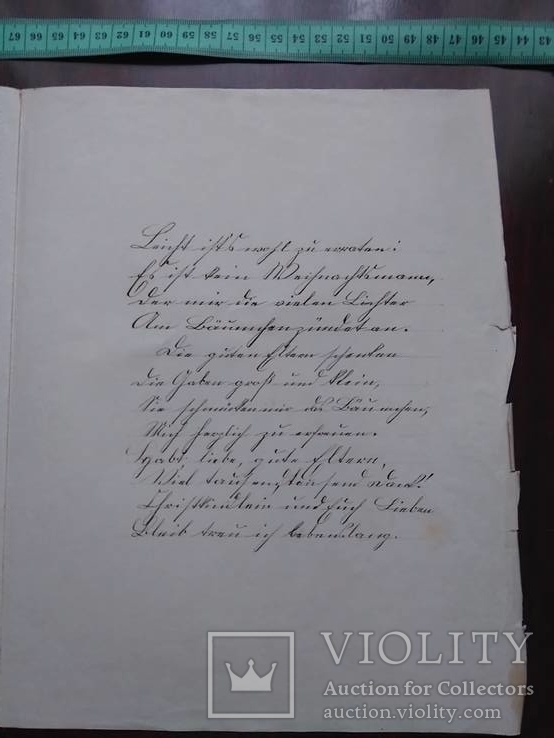 67 66 65 64 63 62 61 60 59 58 57 56 55 54 53 52 51 50 49 48 47 46 45 44 43
Leicht ist's wohl zu erraten:
Es ist kein Weihnachtsmann,
Der mir die vielen Lichter
Am Bäumchen zündet an.
Die guten Eltern schenken
Die Gaben groß und klein,
Sie schmücken mir das Bäumchen,
Mich herzlich zu erfreuen.
Habt liebe, gute Eltern,
Viel tausend, tausend Dank!
Christkindlein und Euch Lieben
Bleib treu ich lebenslang.
VIOLITY
Auction for Collectors
auction.violity.com